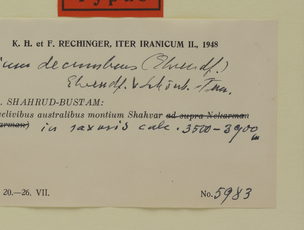 Typus
K. H. et F. RECHINGER, ITER IRANICUM II., 1948
decumbens (Ehrendf.)
Ehrendf. &
SHAHRUD-BUSTAM:
clivibus australibus montium Shahvar ad supra Nekarman
in saxosis calc. 3500-3900 m
20.—26. VII.
No. 5983